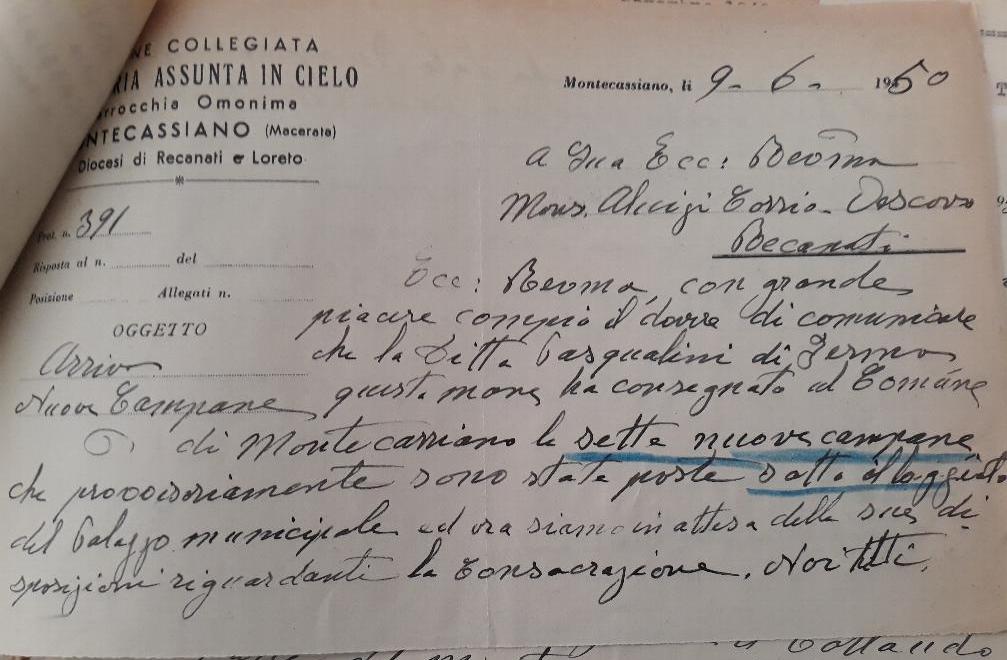 NE COLLEGIATA
RIA ASSUNTA IN CIELO
rrocchia Omonima
NTECASSIANO (Macerata)
Diocesi di Recanati e Loreto
Montecassiano, li 9-6-1950
A Sua Ecc: Revma
Mons. Aluigi Cossio- Vescovo
Recanati
Prot. n. 391
Risposta al n. del
Posizione Allegati n.
OGGETTO
Arrivo
Nuove Campane
Ecc: Revma, con grande
piacere compio il dovere di comunicare
che la Ditta Pasqualini di Fermo
questa mane ha consegnato al Comune
di Montecassiano le sette nuove campane
che provvisoriamente sono state poste sotto il loggiato
del Palazzo municipale ed ora siamo in attesa delle sue di-
sposizioni riguardanti la Consacrazione. Noi tutti,